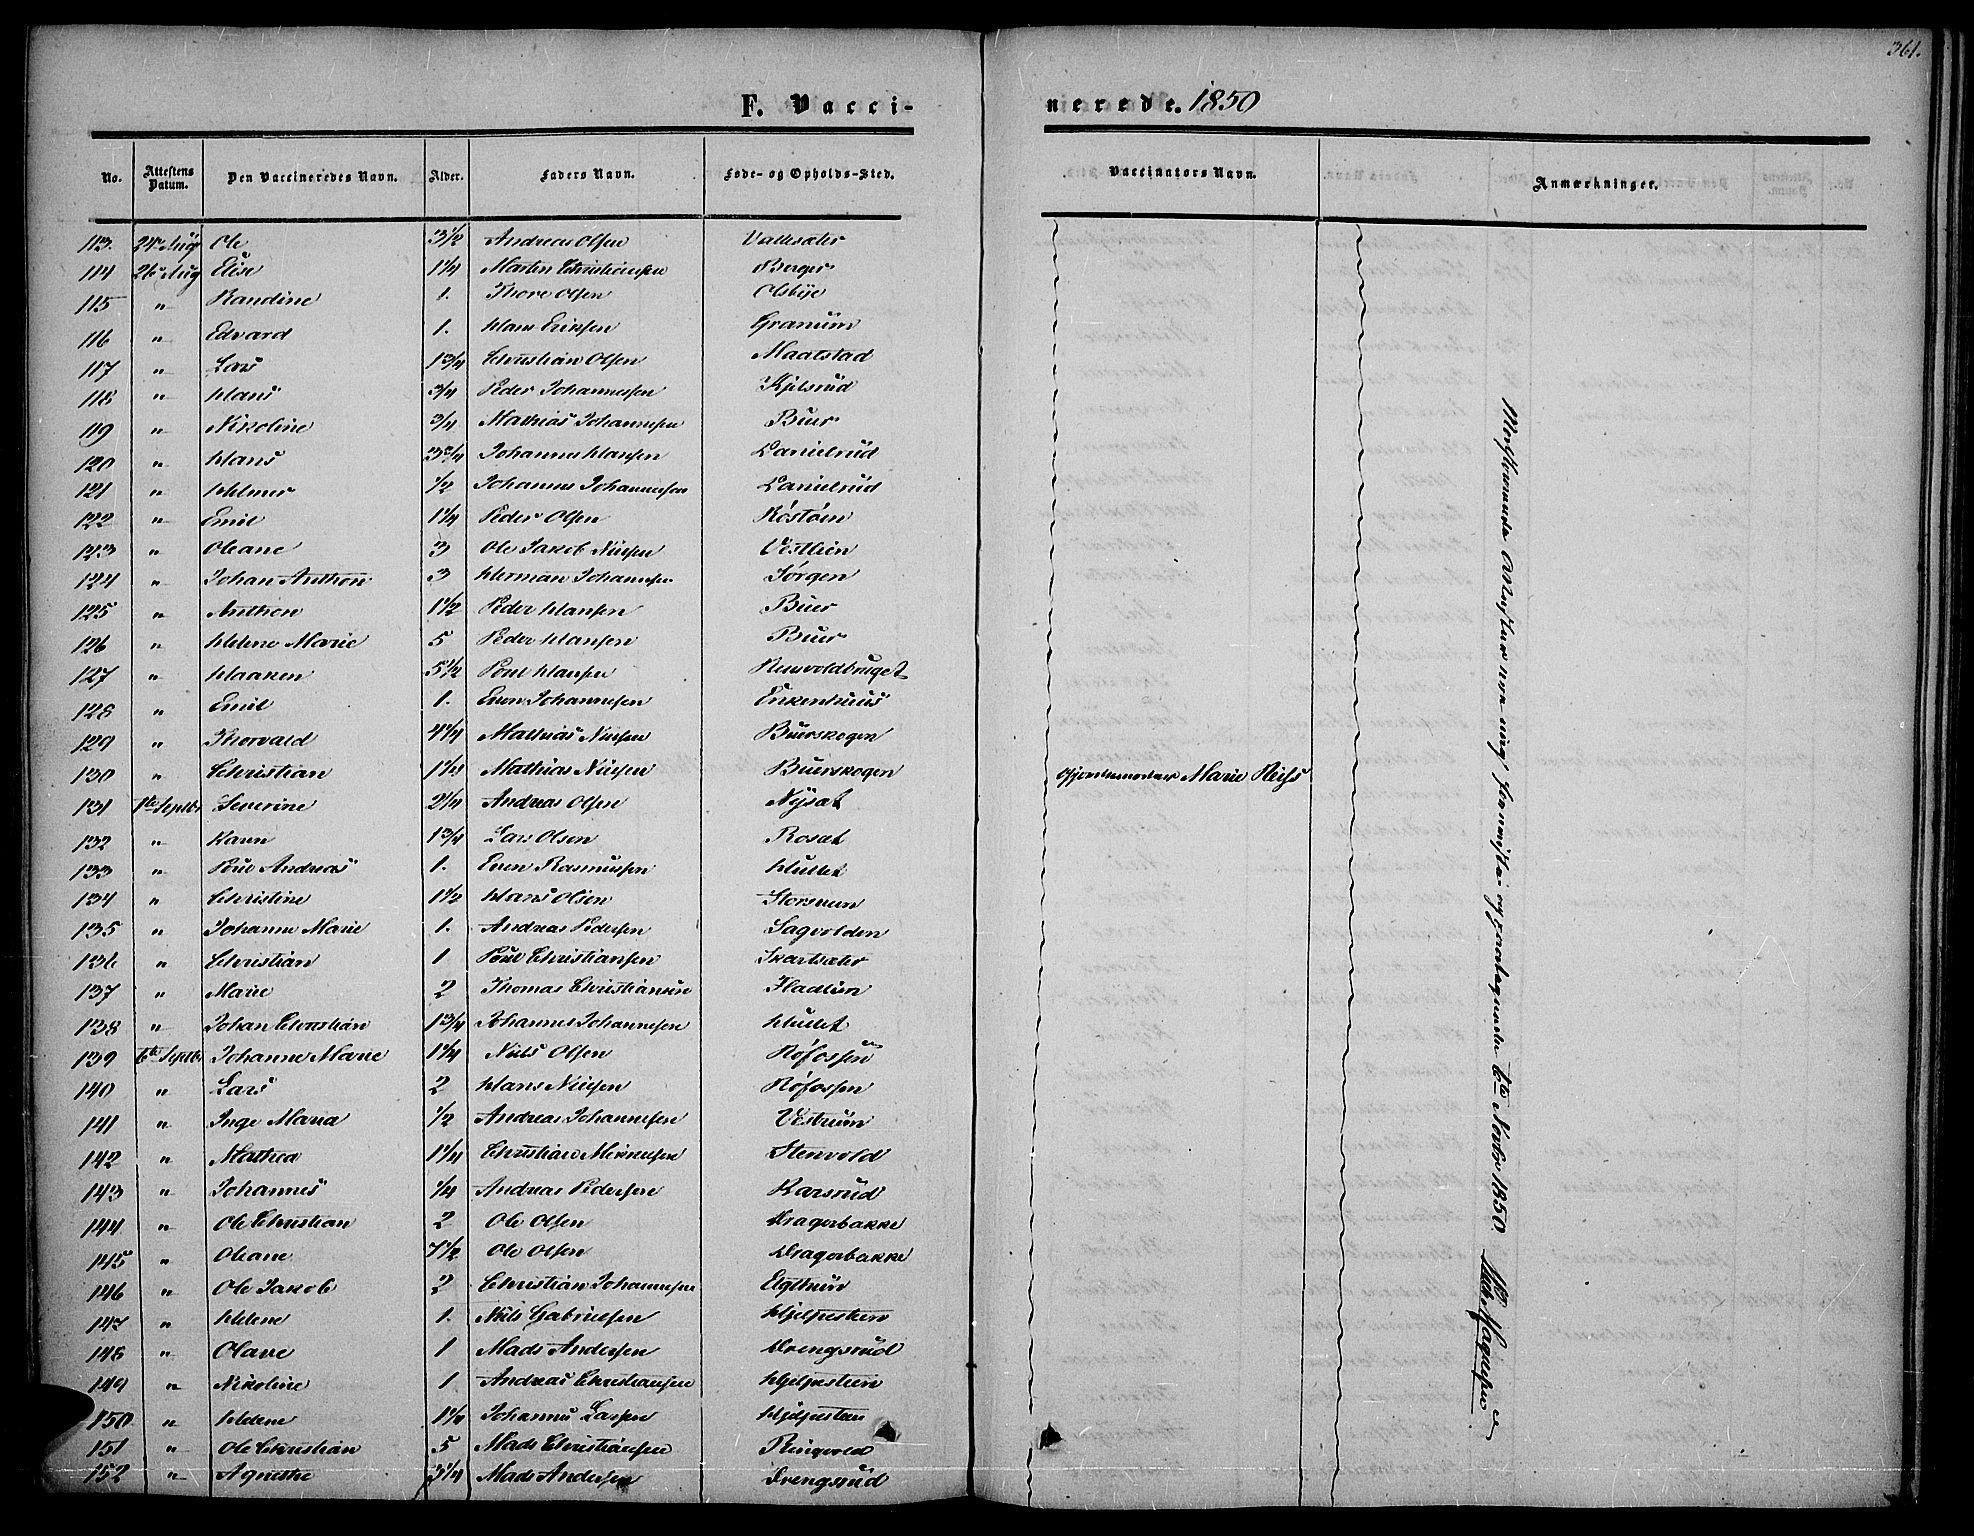 361.
F. Vaccinerede. 1850
No. Attestens Datum. Den Vaccineredes Navn. Alder. Faders Navn. Føde- og Opholds-Sted. Vaccinators Navn. Anmærkninger.
113. 24 Aug Ole 3½ Andreas Olsen Vallesæter
114 26 Aug Elise 1¼ Morten Christiansen Berger
115 " Randine 1. Thore Olsen Olsbye
116 " Edvard 1. Hans Eriksen Granum
117 " Lars 1¾ Christian Olsen Maatstad
118 " Hans ¾ Peder Johannessen Kjelsrud
119 " Nikoline ¾ Mathias Johannesen Buer
120 " Hans 3¾ Johannes Hansen Danielrud
121 " Helmer ½ Johannes Johannessen Danielrud
122 " Emil 1¼ Peder Olsen Röstöen
123 " Oleane 3 Ole Jakob Nielsen Vestlien
124 " Johan Anthon 3 Herman Johannesen Sørgen
125 " Anthon 1½ Peder Hansen Buer
126 " Helene Marie 5 Peder Hansen Buer
127 " Haaken 5½ Poul Hansen
128 " Emil 1. Even Johannesen Enkenhuus
129 " Thorvald 4¼ Mathias Nielsen Buerskogen
130 " Christian 1½ Mathias Nielsen Buerskogen Gjordemoder Marie Reiss
131 1te Septbr Severine 2¼ Andreas Olsen Nysæt
132 " Karen 1¾ Lars Olsen Rosæt
133 " Poul Andreas 1. Even Rasmussen Hullet
134 " Christine 1½ Hans Olsen
135 " Johanne Marie 1. Andreas Pedersen Sagvolden
136 " Christian 1 Poul Christiansen Skartsæter
137 " Marie 2 Thomas Christiansen Fladlien
138 " Johan Christian 1¾ Johannes Johannesen Hullet
139 6te Septbr Johanne Marie 1¼ Niels Olsen Røfossen
140 " Lars 2 Hans Nielsen Røfossen
141 " Inge Maria ½ Andreas Johannesen Vestrum
142 " Mathea 1¼ Christian Mikkelsen Stenvold
143 " Johannes ¼ Andreas Pedersen Karsrud
144 " Ole Christian 2 Ole Olsen Kragerbakke
145 " Oleane 7½ Ole Olsen Kragerbakke
146 " Ole Jakob 2 Christian Johannesen
147 " Helene 1. Niels Gabrielsen Hjelpesteen
148 " Olave 1 Mads Andersen Drengsrud
149 " Nikoline 1 Andreas Christiansen Hjelpesteen
150 " Helene 1½ Johannes Larsen Hjelpesteen
151 " Ole Christian 5 Mads Christiansen Ringvold
152 " Agnethe 3¼ Mads Andersen Drengsrud
Attester 6te Novbr 1850